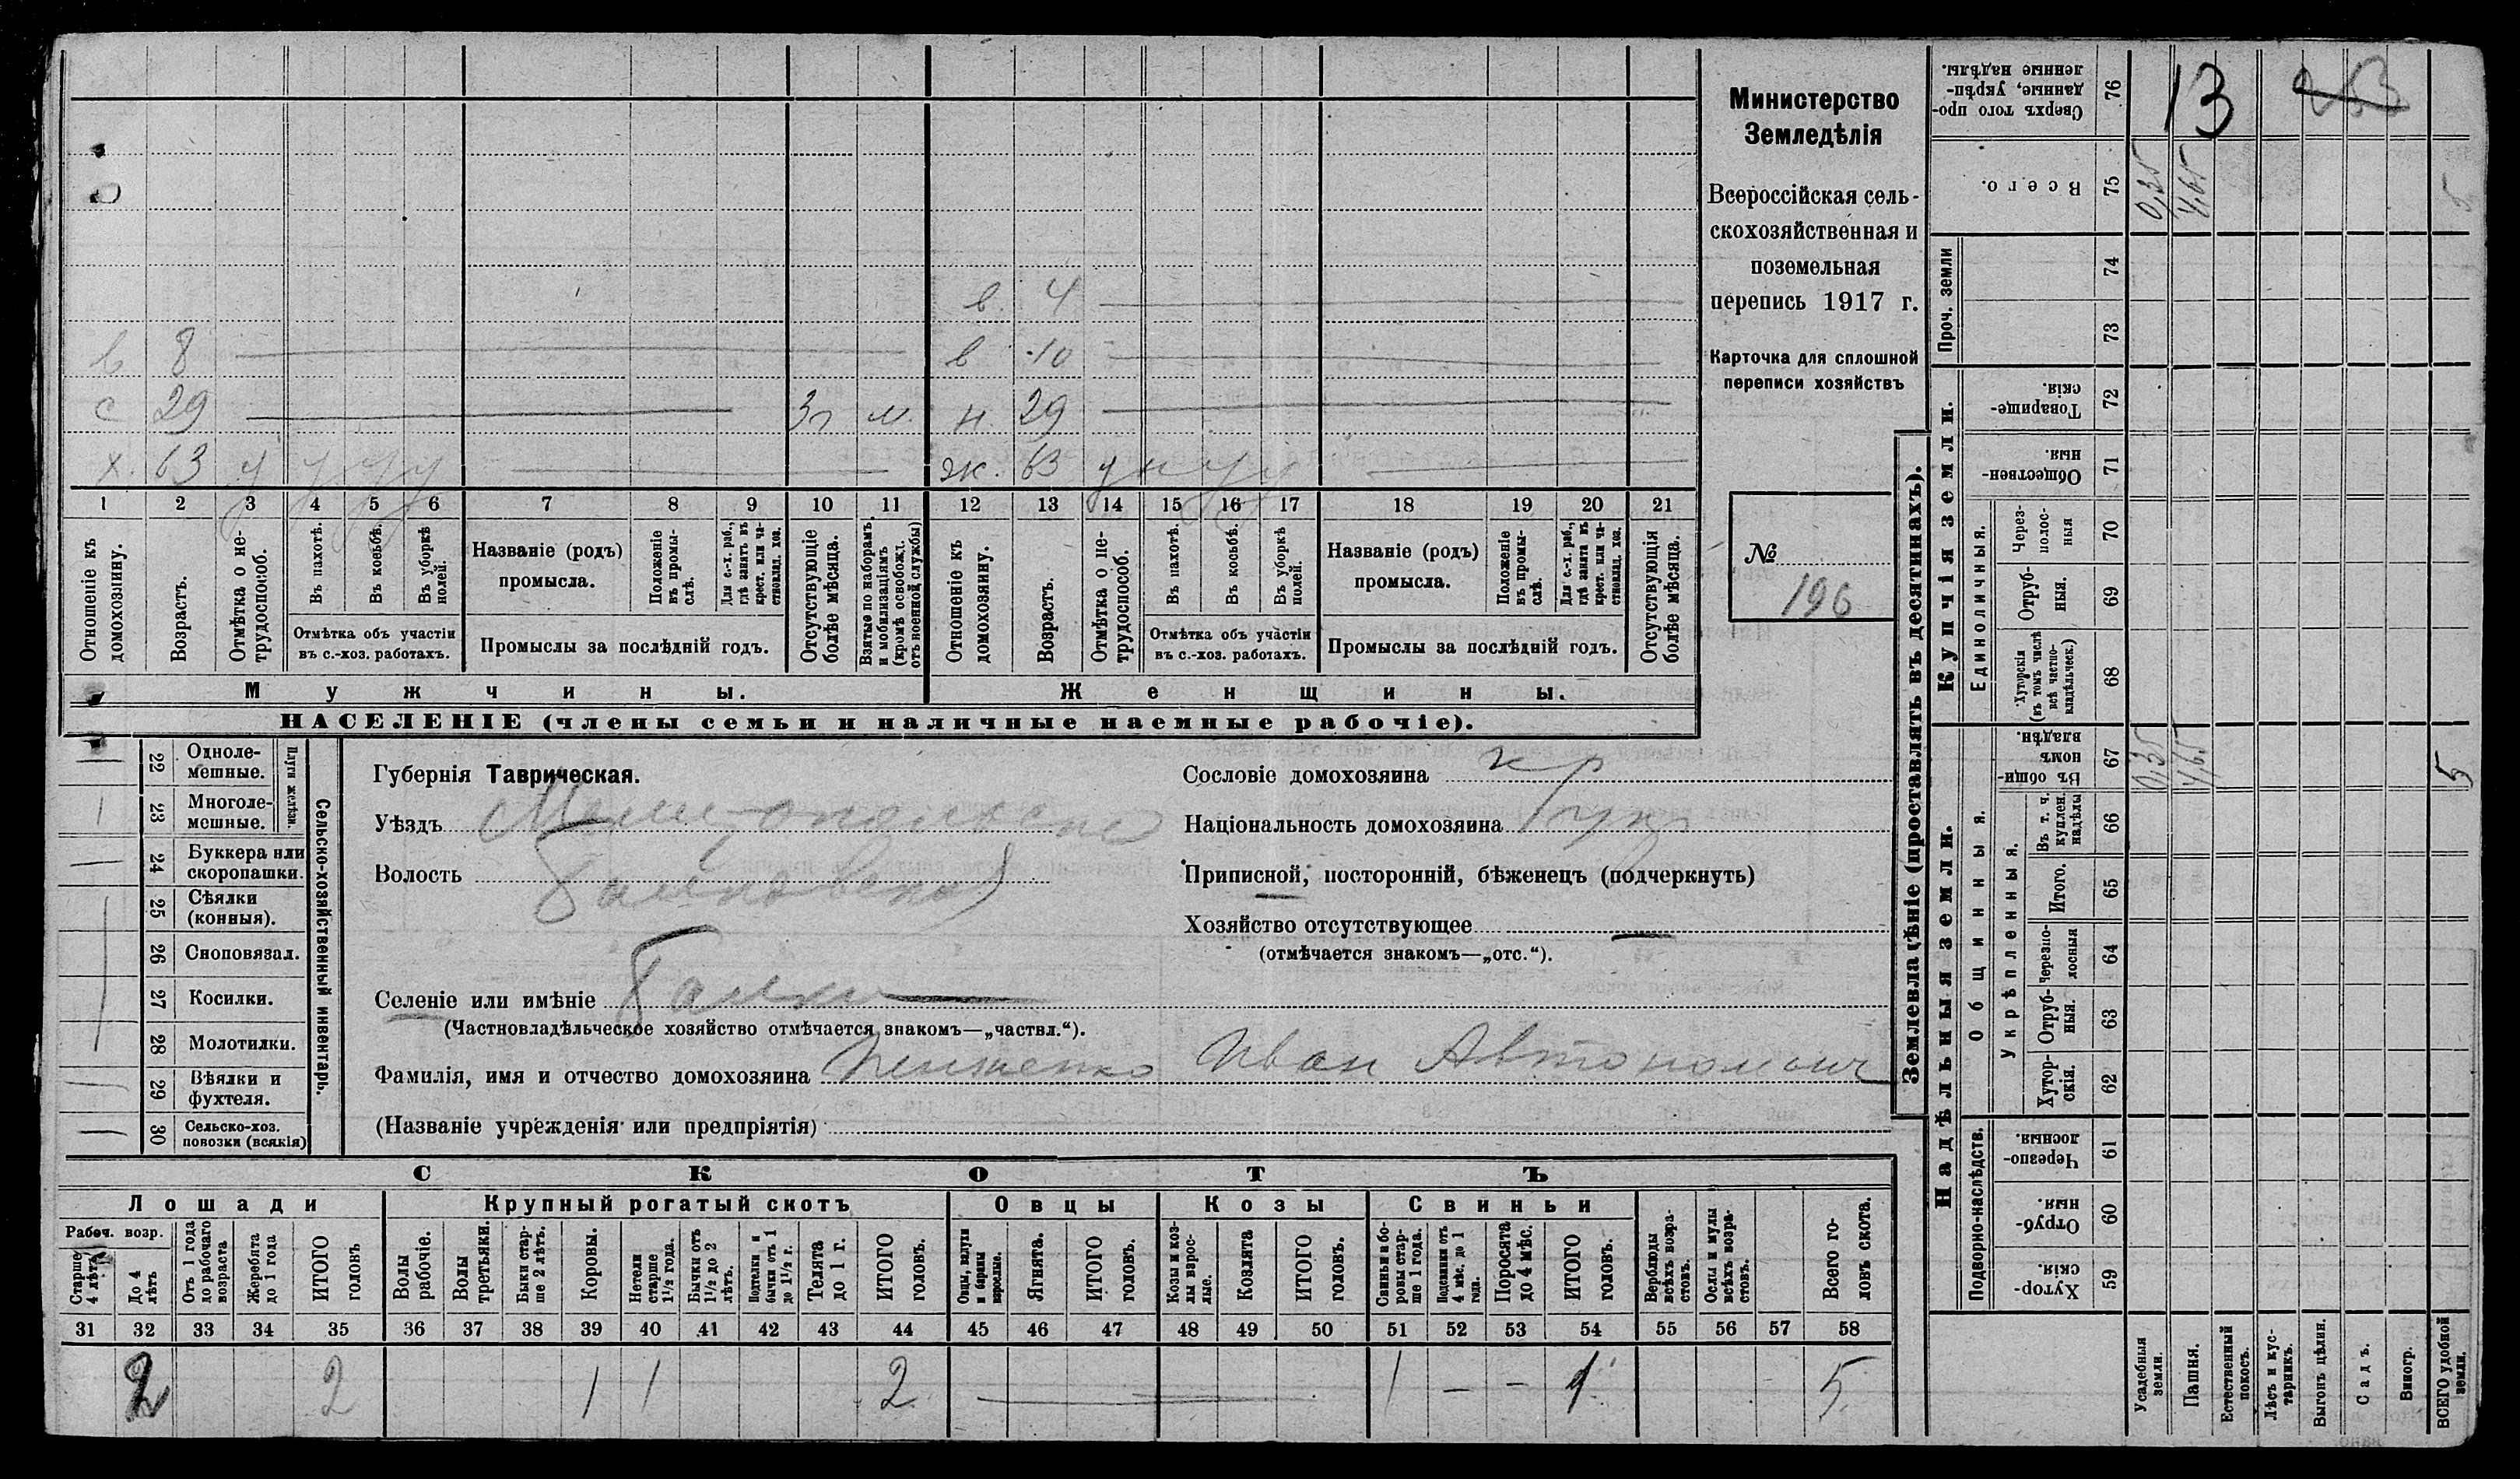 Министерство
Земледѣлія
Всероссійская сель-
скохозяйственная и
поземельная
перепись 1917 г.
Карточка для сплошной
переписи хозяйствъ
№
196
в. 4
в 8
в 10
с 29 3г м.
н. 29
х. 63 у у у у
ж. 63 у н у у
1 2 3 4 5 6 7 8 9 10 11 12 13 14 15 16 17 18 19 20 21
Отношеніе къ домохозяину.
Возрастъ.
Отмѣтка о не-трудоспособ.
Въ пахотѣ.
Въ косьбѣ.
Въ уборкѣ полей.
Отмѣтка объ участіи
въ с.-хоз. работахъ.
Названіе (родъ)
промысла.
Положеніе въ промы-слѣ.
Для с.-х. раб., гдѣ занятъ въ крест. или ча-стновлад. хоз.
Промыслы за послѣдній годъ.
Отсутствующіе болѣе мѣсяца.
Взятые по наборамъ и мобилизаціямъ (кромѣ освобожд. отъ военной службы)
Отношеніе къ домохозяину.
Возрастъ.
Отмѣтка о не-трудоспособ.
Въ пахотѣ.
Въ косьбѣ.
Въ уборкѣ полей.
Отмѣтка объ участіи
въ с.-хоз. работахъ.
Названіе (родъ)
промысла.
Положеніе въ промы-слѣ.
Для с.-х. раб., гдѣ занята въ крест. или ча-стновлад. хоз.
Промыслы за послѣдній годъ.
Отсутствующія болѣе мѣсяца.
Мужчины.
Женщины.
НАСЕЛЕНІЕ (члены семьи и наличные наемные рабочіе).
Сельско-хозяйственный инвентарь.
Плуги желѣзн.
22 Одноле-мешные.
23 Многоле-мешные.
24 Буккера или скоропашки.
25 Сѣялки (конныя).
26 Сноповязал.
27 Косилки.
28 Молотилки.
29 Вѣялки и фухтеля.
30 Сельско-хоз. повозки (всякія)
Губернія Таврическая.
Уѣздъ Мелитопольскій
Волость Балковской
Селеніе или имѣніе Балки
(Частновладѣльческое хозяйство отмѣчается знакомъ—„частвл.“).
Фамилія, имя и отчество домохозяина Иван Автономович
(Названіе учрежденія или предпріятія)
Сословіе домохозяина кр
Національность домохозяина
Приписной, посторонній, бѣженецъ (подчеркнуть)
Хозяйство отсутствующее
(отмѣчается знакомъ—„отс.“).
СКОТЪ
Лошади
Крупный рогатый скотъ
Овцы
Козы
Свиньи
Рабоч. возр.
Старше 4 лѣтъ
До 4 лѣтъ
Отъ 1 года до рабочаго возраста
Жеребята до 1 года
ИТОГО головъ
Волы рабочіе.
Волы третьяки.
Быки стар-ше 2 лѣтъ.
Коровы.
Нетели старше 1½ года.
Бычки отъ 1½ до 2 лѣтъ.
Подтелки и бычки отъ 1 до 1½ г.
Телята до 1 г.
ИТОГО головъ.
Овцы, валухи и бараны взрослые.
Ягнята.
ИТОГО головъ.
Козы и коз-лы взрос-лые.
Козлята
ИТОГО головъ.
Свиньи и бо-ровы стар-ше 1 года.
Подсвинки отъ 4 мѣс. до 1 года.
Поросята до 4 мѣс.
ИТОГО головъ.
Верблюды всѣхъ возра-стовъ.
Ослы и мулы всѣхъ возра-стовъ.
Всего го-ловъ скота.
31 32 33 34 35 36 37 38 39 40 41 42 43 44 45 46 47 48 49 50 51 52 53 54 55 56 57 58
2 2 1 1 2 1 – – 1 5
Землевладѣніе (проставлять въ десятинахъ).
Купчія земли.
Надѣльныя земли.
Проч. земли
Единоличныя.
Общинныя.
Укрѣпленныя.
Подворно-наслѣдств.
Сверхъ того про-данные, укрѣп-ленные надѣлы. 76 13
Всего. 75 0,35 4,65 5
74
73
Товарище-скія. 72
Обществен-ныя. 71
Через-полос-ныя 70
Отруб-ныя. 69
Хуторскія (въ томъ числѣ всѣ частно-владѣльческ.) 68
Въ общин-номъ владѣн. 67 0,35 4,65 5
Въ т. ч. куплен. надѣлы 66
Итого. 65
Черезпо-лосныя 64
Отруб-ныя. 63
Хутор-скія. 62
Черезпо-лосныя. 61
Отруб-ныя. 60
Хутор-скія. 59
Усадебныя земли.
Пашня.
Естественный покосъ.
Лѣсъ и кус-тарникъ.
Выгонъ цѣлин.
Садъ.
Виногр.
ВСЕГО удобной земли.